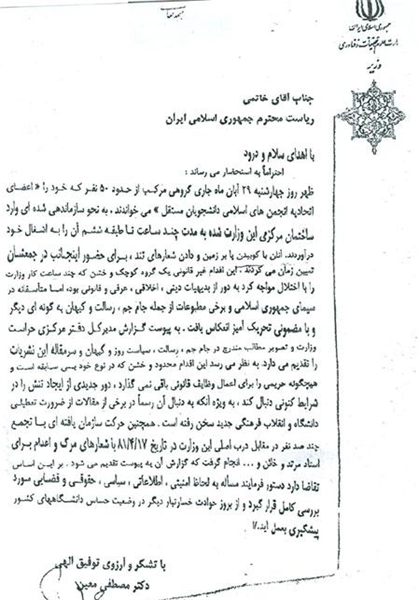 بسمه تعالی
جمهوری اسلامی ایران
وزارت علوم، تحقیقات و فناوری
وزیر
جناب آقای خاتمی
ریاست محترم جمهوری اسلامی ایران
با اهدای سلام و درود
احتراماً به استحضار می رساند :
ظهر روز چهارشنبه ۲۹ آبان ماه جاری گروهی مرکب از حدود ۵۰ نفر که خود را « اعضای
اتحادیه انجمن های اسلامی دانشجویان مستقل » می خواندند ، به نحو سازماندهی شده ای وارد
ساختمان مرکزی این وزارت شده به مدت چند ساعت تا طبقه ششم آن را به اشغال خود
درآوردند. آنان با کوبیدن پا بر زمین و دادن شعارهای تند ، برای حضور اینجانب در جمعشان
تعیین زمان می کردند . این اقدام غیر قانونی یک گروه کوچک و خشن که چند ساعت کار وزارت
را با اختلال مواجه کرد به دور از بدیهیات دینی ، اخلاقی ، عرفی و قانونی بود، اما متأسفانه در
سیمای جمهوری اسلامی و برخی مطبوعات از جمله جام جم ، رسالت و کیهان به گونه ای دیگر
و با مضمونی تحریک آمیز انعکاس یافت . به پیوست گزارش مدیرکل دفتر مرکزی حراست
وزارت و تصویر مطالب مندرج در جام جم ، رسالت ، سیاست روز و کیهان و سرمقاله این نشریات
را تقدیم می دارد. به نظر می رسد این اقدام محدود و خشن که در نوع خود بسی سابقه است و
هیچگونه حریمی را برای اعمال وظایف قانونی باقی نمی گذارد ، دور جدیدی از ایجاد تنش را در
شرایط کنونی دنبال کند ، به ویژه آنکه به دنبال آن رسماً در برخی از مقالات از ضرورت تعطیلی
دانشگاه و انقلاب فرهنگی جدید سخن رفته است . همچنین حرکت سازمان یافته ای با تجمع
چند صد نفر در مقابل درب اصلی این وزارت در تاریخ ۸۱/۴/۱۷ با شعارهای مرگ و اعدام برای
استاد مرتد و خائن و ... انجام گرفت که گزارش آن به پیوست تقدیم می شود . بر این اساس
تقاضا دارد دستور فرمایند مسأله به لحاظ امنیتی ، اطلاعاتی ، سیاسی ، حقوقی و قضایی مورد
بررسی کامل قرار گیرد و از بروز حوادث خسارتبار دیگر در وضعیت حساس دانشگاههای کشور
پیشگیری بعمل آید./
با تشکر و آرزوی توفیق الهی
دکتر مصطفی معین